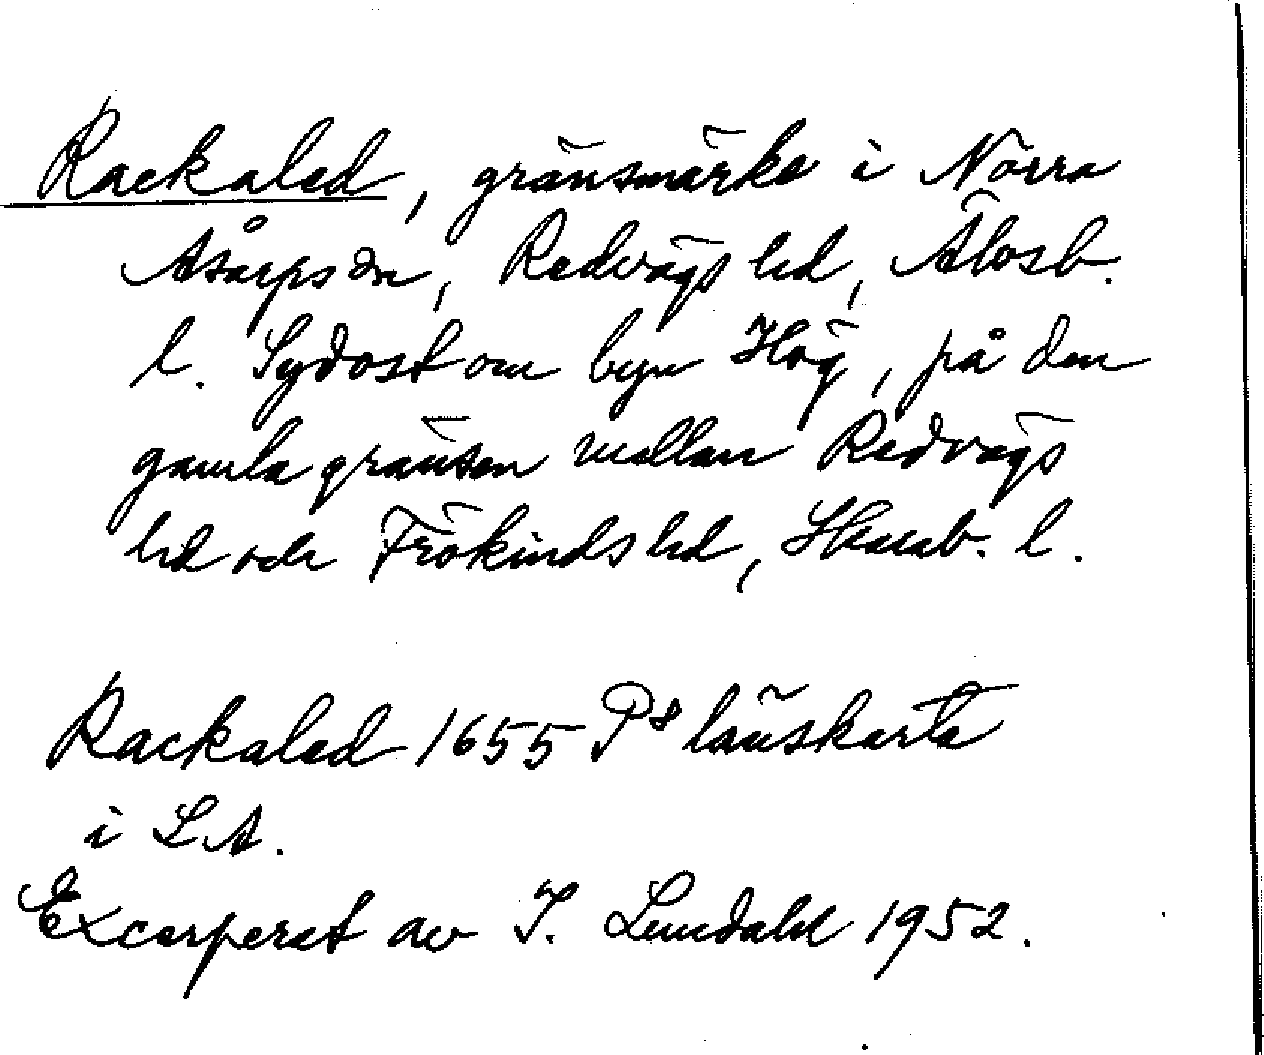 Rackaled, gränsmärke i Norra
Åsarps sn, Redvägs hd, Älvsb.
l. Sydost om byn Hög, på den
gamla gränsen mellan Redvägs
hd och Frökinds hd, Skarab. l.
Rackaled 1655 P8 länskarta
i LA.
Excerperat av I. Lundahl 1952.